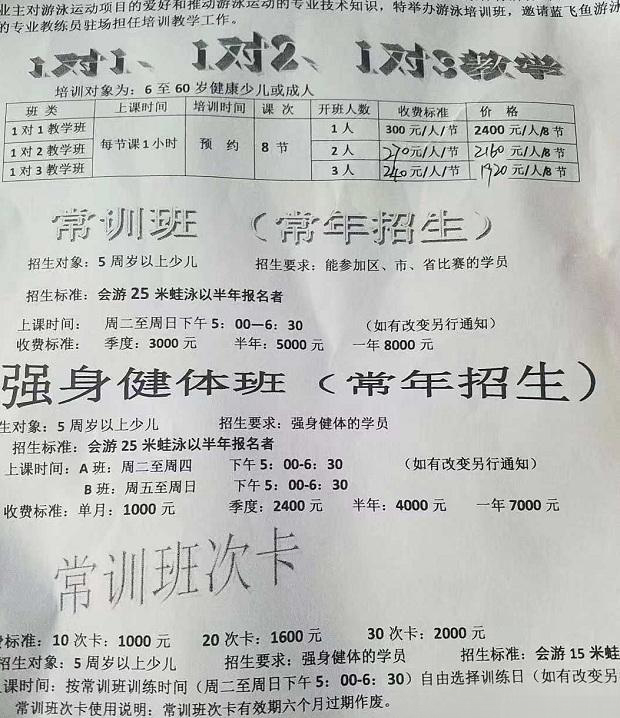 业主对游泳运动项目的爱好和推动游泳运动的专业技术知识，特举办游泳培训班，邀请蓝飞鱼游泳
的专业教练员驻场担任培训教学工作。
1对1、1对2、1对3教学
培训对象为：6 至 60 岁健康少儿或成人
班 类 上课时间 培训时间 课 次 开班人数 收费标准 价 格
1 对 1 教学班 每节课 1 小时 预 约 8 节 1 人 300 元/人/节 2400 元/人/8 节
1 对 2 教学班 2 人 270元/人/节 2160 元/人/8 节
1 对 3 教学班 3 人 240元/人/节 1920 元/人/8 节
常训班 （常年招生）
招生对象：5 周岁以上少儿 招生要求：能参加区、市、省比赛的学员
招生标准：会游 25 米蛙泳以半年报名者
上课时间： 周二至周日下午 5：00—6：30 （如有改变另行通知）
收费标准： 季度：3000 元 半年：5000 元 一年 8000 元
强身健体班（常年招生）
生对象：5 周岁以上少儿 招生要求：强身健体的学员
招生标准：会游 25 米蛙泳以半年报名者
上课时间：A 班：周二至周四 下午 5：00-6：30 （如有改变另行通知）
B 班：周五至周日 下午 5：00-6：30
收费标准：单月：1000 元 季度：2400 元 半年：4000 元 一年 7000 元
常训班次卡
标准：10 次卡：1000 元 20 次卡：1600 元 30 次卡：2000 元
招生对象：5 周岁以上少儿 招生要求：强身健体的学员 招生标准：会游 15 米蛙
课时间：按常训班训练时间（周二至周日下午 5：00-6：30）自由选择训练日（如有改变另
常训班次卡使用说明：常训班次卡有效期六个月过期作废。